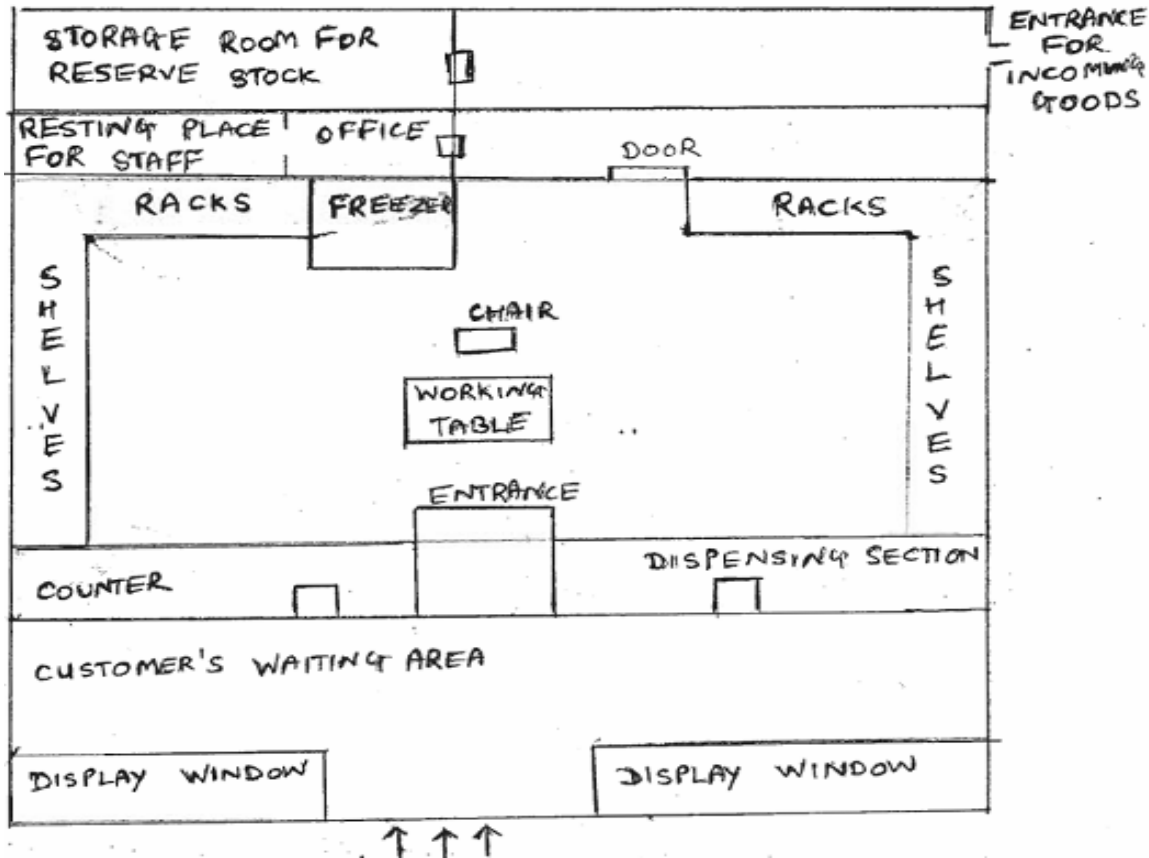 STORAGE ROOM FOR
RESERVE STOCK
ENTRANCE
FOR
INCOMING
GOODS
RESTING PLACE
FOR STAFF
OFFICE
DOOR
RACKS
FREEZER
RACKS
SHELVES
CHAIR
SHELVES
WORKING
TABLE
ENTRANCE
COUNTER
DISPENSING SECTION
CUSTOMER'S WAITING AREA
DISPLAY WINDOW
DISPLAY WINDOW